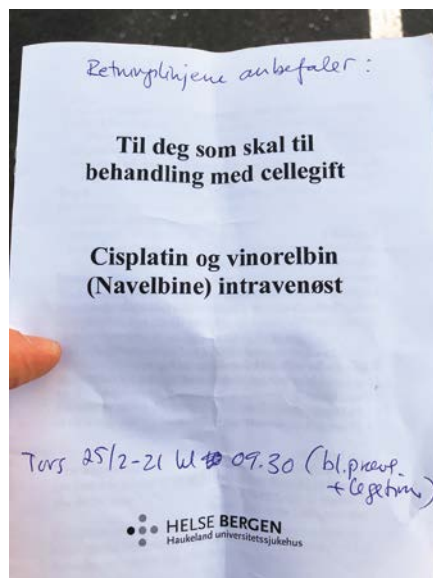 Retningslinjene anbefaler:
Til deg som skal til
behandling med cellegift
Cisplatin og vinorelbin
(Navelbine) intravenøst
Tors 25/2-21 kl 09.30 (bl.prøve.
+ legetime)
HELSE BERGEN
Haukeland universitetssjukehus